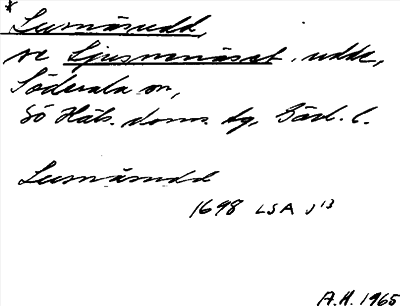 *
Lusnäsudd,
se Ljusnenäset, udde,
Söderala sn,
Sö Häls. doms. tg, Gävl. l.
Lusnäsudd
1698 LSA J¹³
A.H. 1965